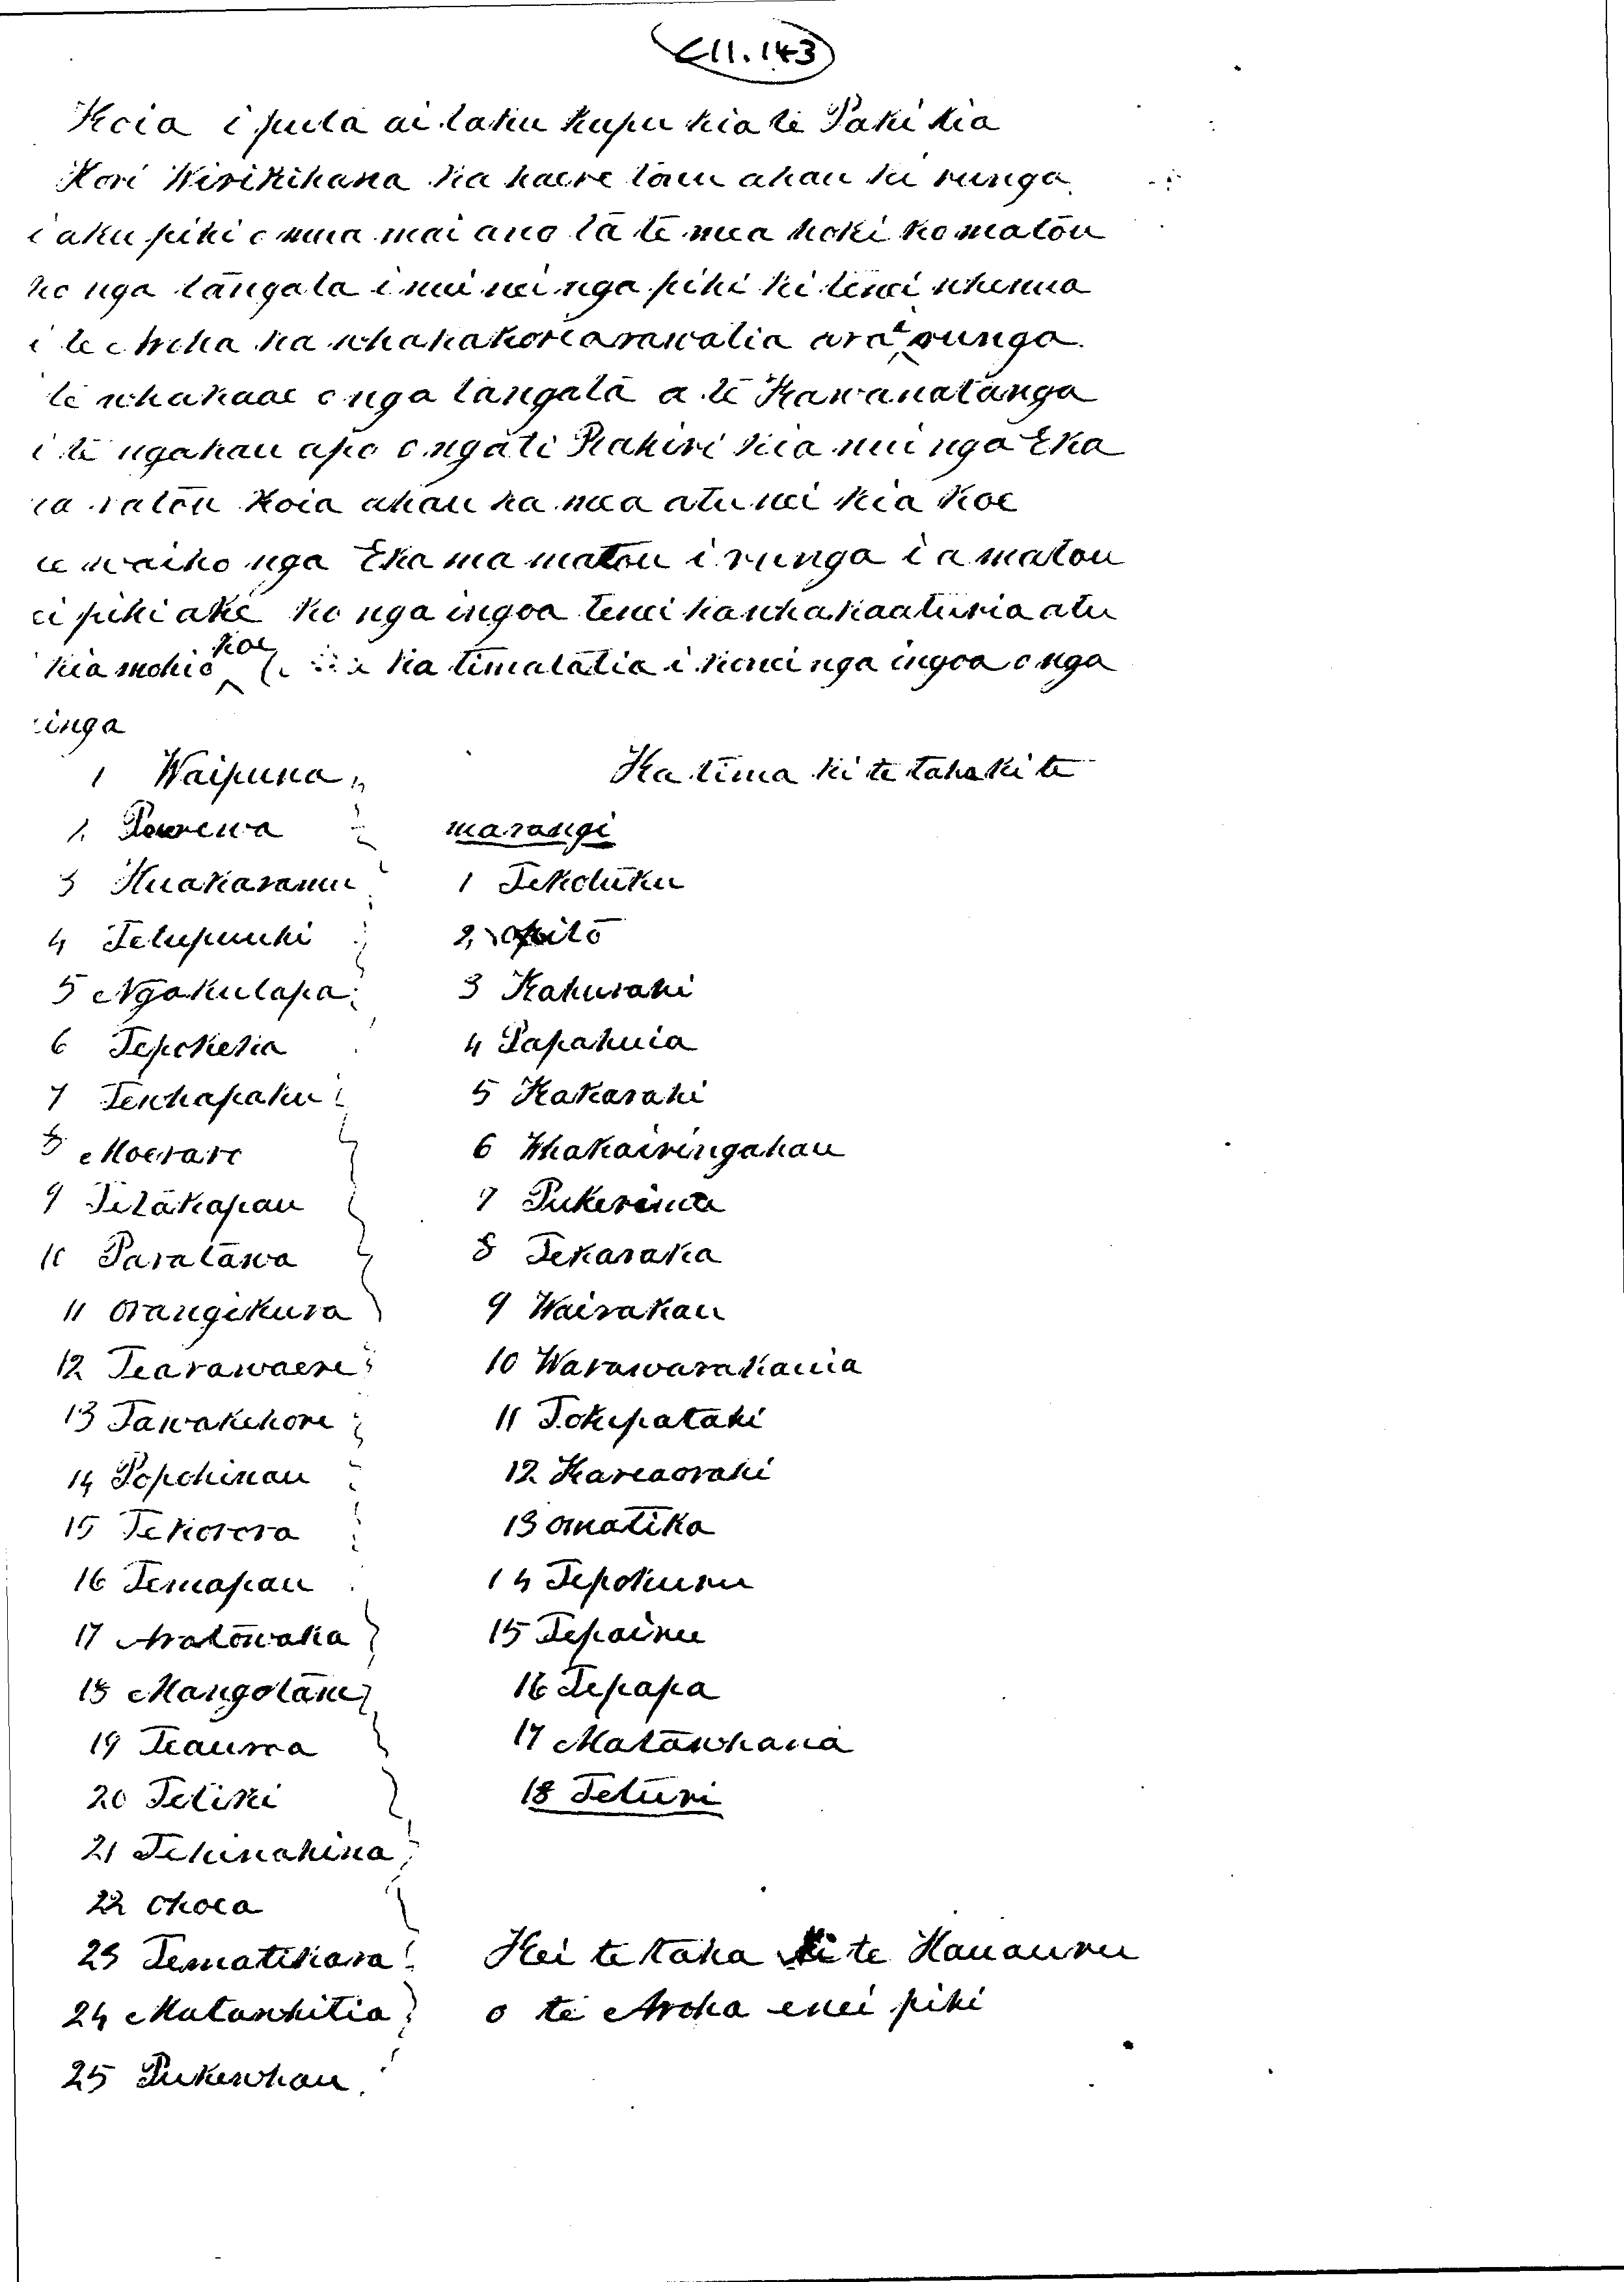 C11.143
Koia i puta ai taku kupu kia te Paki kia
Hori Wirikihana ka haere tonu ahau ki runga
i aku piki o mua mai ano ta te mea hoki ko matou
ko nga tangata i nui nei nga piki ki tenei whenua
i te Aroha ka whakakorea rawatia ara i runga
te whakaae o nga tangata a te Kawanatanga
i te ngahau apo o ngati Rahiri kia nui nga Eka
ratou koia ahau ka mea atu nei kia koe
waiho nga Eka ma matou i runga i a matou
piki ake ko nga ingoa tenei ka whakaaturia atu
kia mohio koe ka timatatia i konei nga ingoa o nga
1 Waipuna
Pourewa
3 Huakaramu
4 Tetupuuhi
5 Ngakutapa
6 Tepokeha
7 Tewhapaku
8 Moerare
9 Tetakapau
10 Paratawa
11 Orangikura
12 Tearawaere
13 Tawakehore
14 Popohinau
15 Tekorora
16 Temapau
17 Aratowaka
18 Mangotane
19 Teaurea
20 Tetiki
21 Tehinahina
22 Ohoea
23 Tematikara
24 Matawhitia
25 Pukewhau
Ka tima ki te taha ki te
marangi
1 Tekotuku
2 opito
3 Kahurahi
4 Papahuia
5 Kakarahi
6 Whakairingahau
7 Pukerimu
8 Tekaraka
9 Wairakau
10 Warawarahauia
11 Tokipatahi
12 Kareaorahi
13 omatika
14 Tepohuru
15 Tepairu
16 Tepapa
17 Matawhana
18 Teturi
Kei te taha ki te Hauauru
o te Aroha enei piki